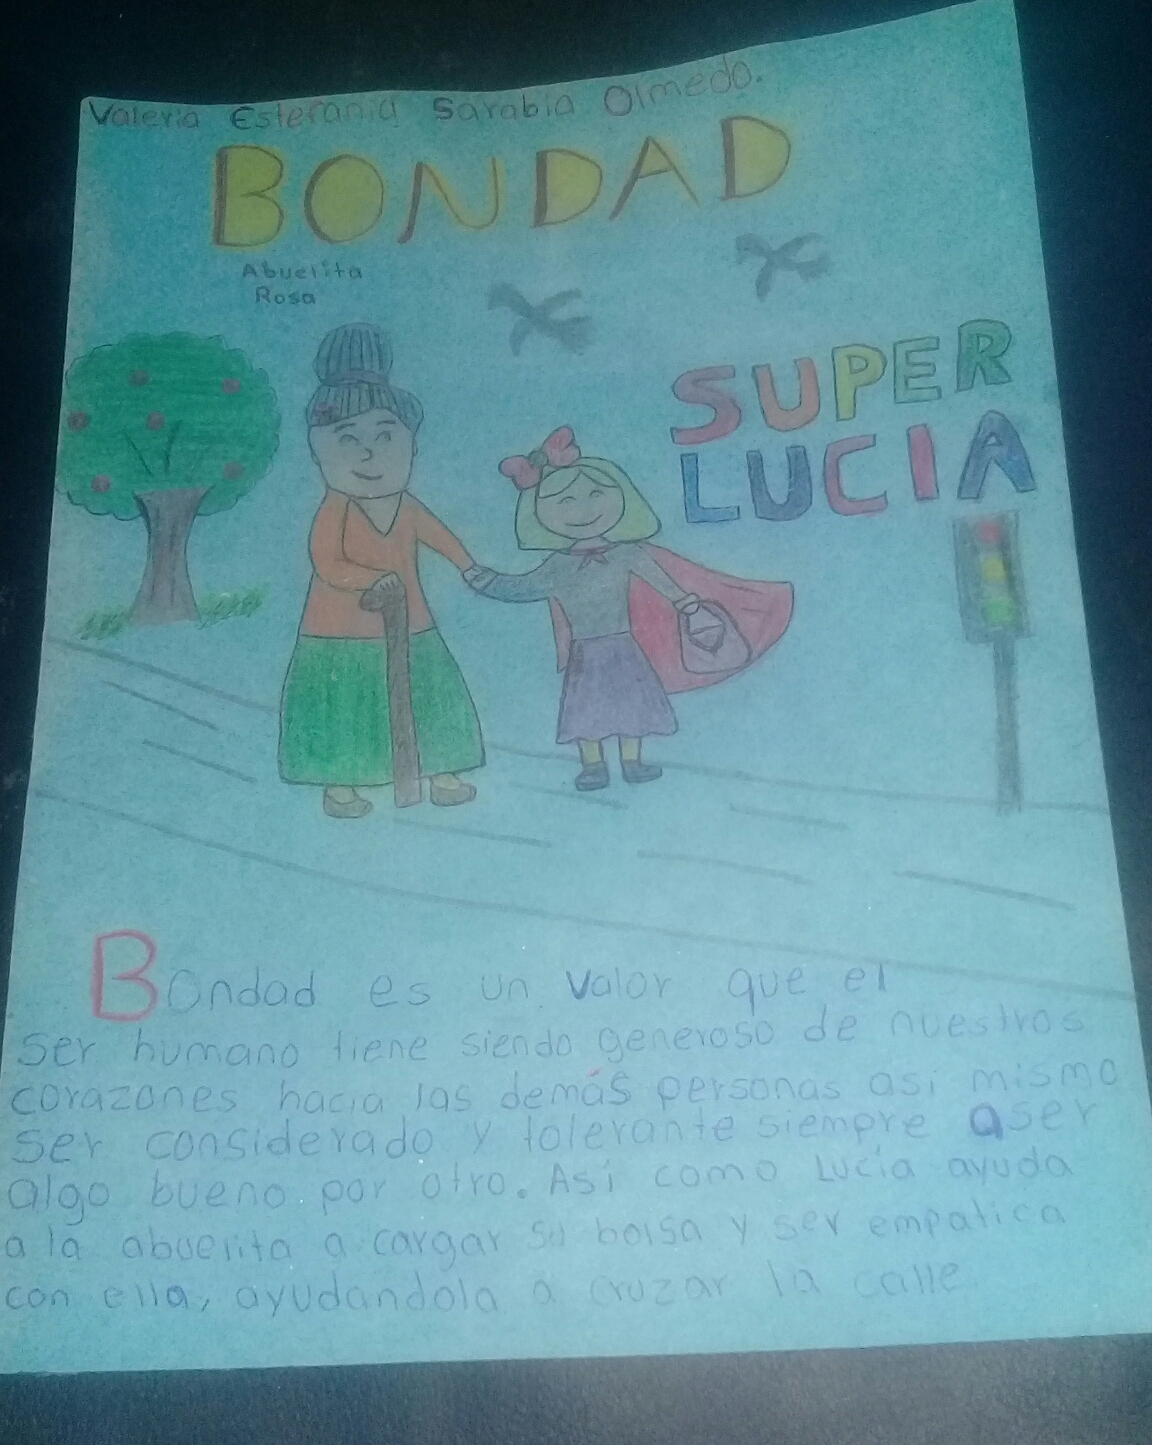 Valeria Estefania Sarabia Olmedo.
BONDAD
Abuelita
Rosa
SUPER
LUCIA
Bondad es un valor que el
ser humano tiene siendo generoso de nuestros
corazones hacia las demás personas asi mismo
ser considerado y tolerante siempre aser
algo bueno por otro. Así como Lucía ayuda
a la abuelita a cargar su bolsa y ser empatica
con ella, ayudandola a cruzar la calle.